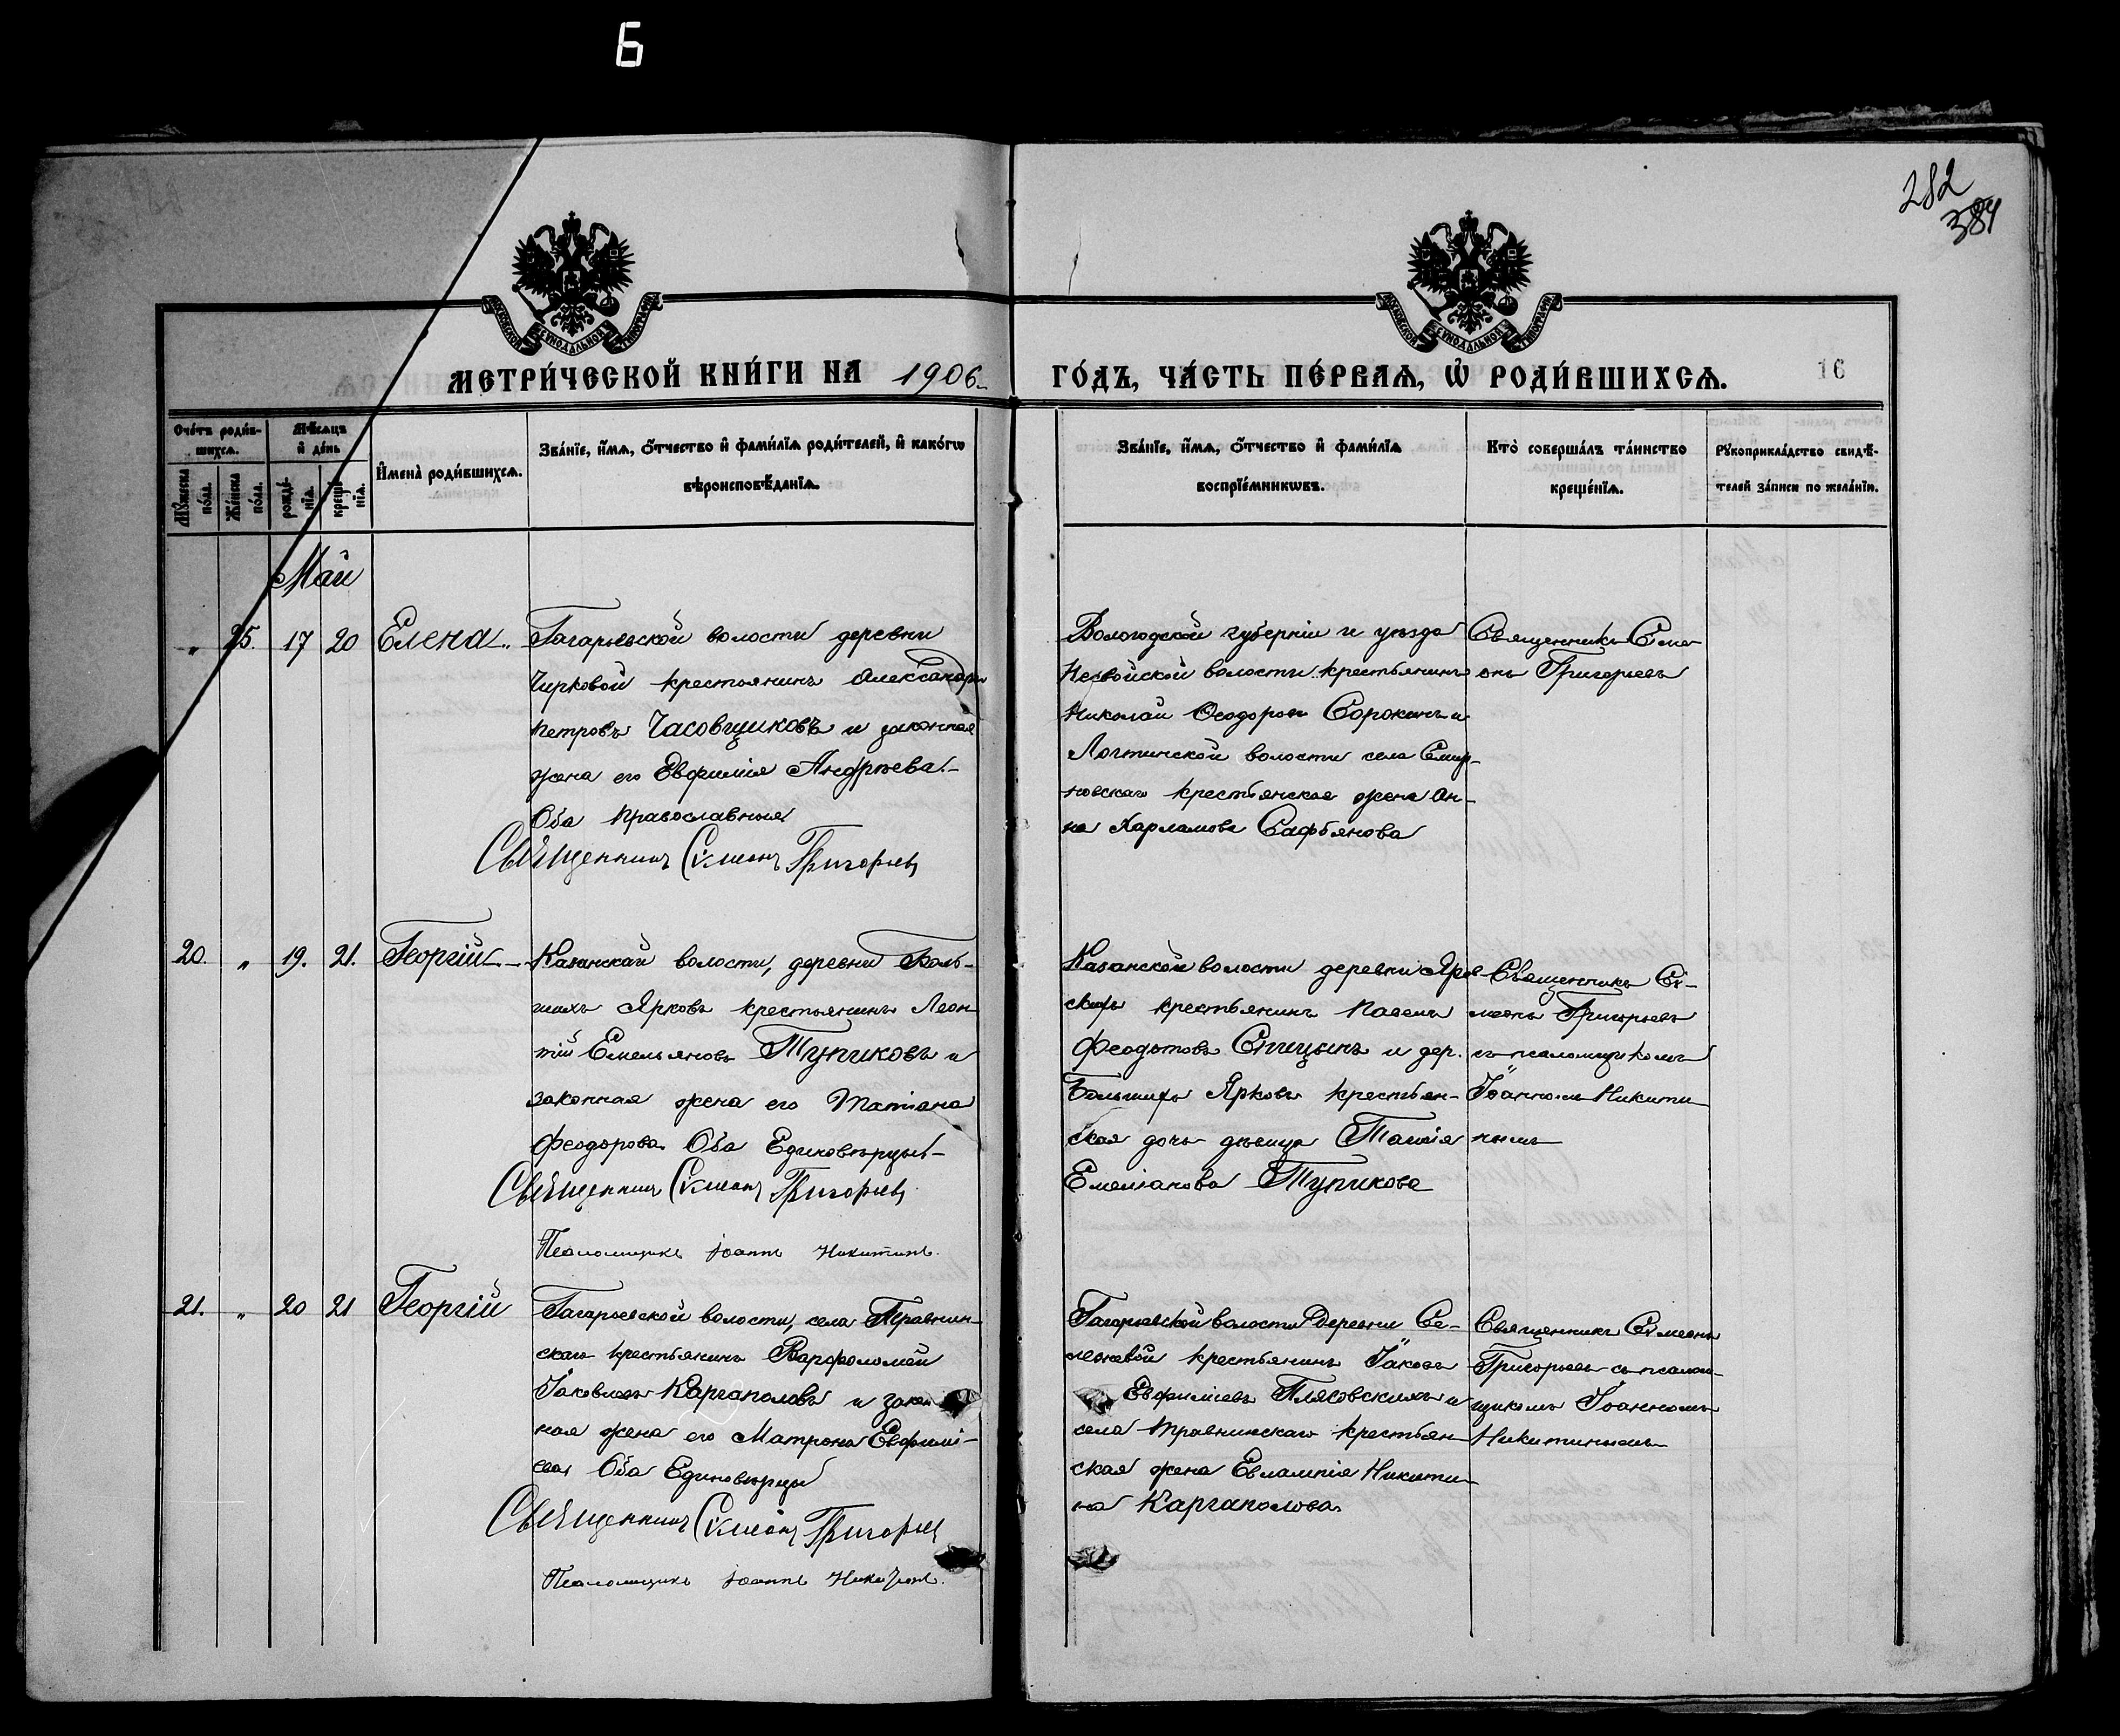 Б
282
384
МОСКОВСКОЙ СѴНОДАЛЬНОЙ ТИПОГРАФІИ
МОСКОВСКОЙ СѴНОДАЛЬНОЙ ТИПОГРАФІИ
МЕТРИ́ЧЕСКОЙ КНИ́ГИ НА 1906 ГО́ДЪ, ЧА́СТЬ ПЕ́РВАѦ, Ѡ҆ РОДИ́ВШИХСѦ.
16
Сче́тъ роди́в-
шихсѧ.
Мѣ́сѧцъ
и҆ де́нь
Мꙋ́жеска
по́ла.
Же́нска
по́ла.
рожде́-
нїѧ.
креще́-
нїѧ.
И҆мена̀ роди́вшихсѧ.
Зва́нїе, и҆́мѧ, ѻ҆́тчество и҆ фами́лїѧ роди́телей, и҆ како́гѡ
вѣроисповѣ́данїѧ.
Зва́нїе, и҆́мѧ, ѻ҆́тчество и҆ фами́лїѧ
воспрїе́мникѡвъ.
Кто̀ соверша́лъ та́инство
креще́нїѧ.
Рꙋкоприкла́дство свидѣ́-
телей за́писи по жела́нїю.
Май
„ 25. 17 20 Елена.
Гагарьевской волости деревни
Чирковой крестьянинъ Александръ
Петровъ Часовщиковъ и законная
жена его Евфимія Андреева.
Оба православныя
Священникъ Сѵмеонъ Григорьевъ
Вологодской губерніи и уѣзда
волости крестьянинъ
Николай Ѳеодоровъ Сорокинъ и
Локтинской волости села Смир-
новскаго крестьянская жена Ан-
на Харламова Сафьянова
Священникъ Симе-
онъ Григорьевъ
20. „ 19. 21. Георгій
Казанской волости, деревни Боль-
шихъ Ярковъ крестьянинъ Леон-
тій Емельяновъ Тупиковъ и
законная жена его Татіана
Феодорова Оба Единовѣрцы
Священникъ Сѵмеонъ Григорьевъ
Псаломщикъ Іоаннъ Никитинъ.
Казанской волости деревни
крестьянинъ Павелъ
Феодотовъ Спицынъ и дер.
Большихъ Ярковъ крестьян-
ская дочь дѣвица
Емеліанова Тупикова
Священникъ Сѵ-
меонъ Григорьевъ
съ псаломщикомъ
Іоанномъ Никити-
нымъ
21. „ 20 21 Георгій
Гагарьевской волости, села Травнин-
скаго крестьянинъ Варфоломей
Іаковлевъ Каргаполовъ и закон-
ная жена его Матрона Евфимі-
ева Оба Единовѣрцы
Священникъ Сѵмеонъ Григорьевъ
Псаломщикъ Іоаннъ Никитинъ.
Гагарьевской волости Деревни Се-
лезневой крестьянинъ Іаковъ
Евфиміевъ Плясовскихъ и
села Травнинскаго крестьян-
ская жена Евлампія Никити-
на Каргаполова
Священникъ Сѵмеонъ
Григорьевъ съ псалом-
щикомъ Іоанномъ
Никитинымъ